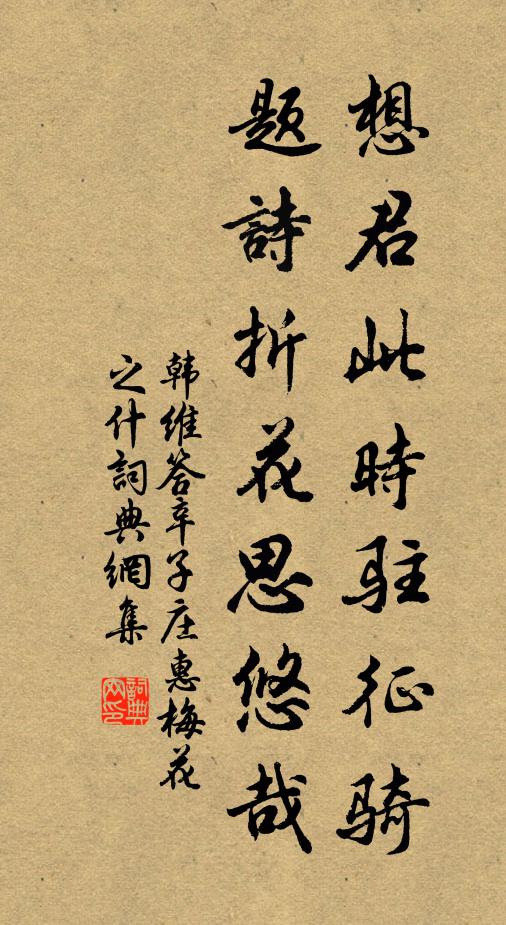 想君此時駐征骑
题詩折花思悠哉
韩维答辛子庄惠梅花
之什詞典網集
詞典
网印